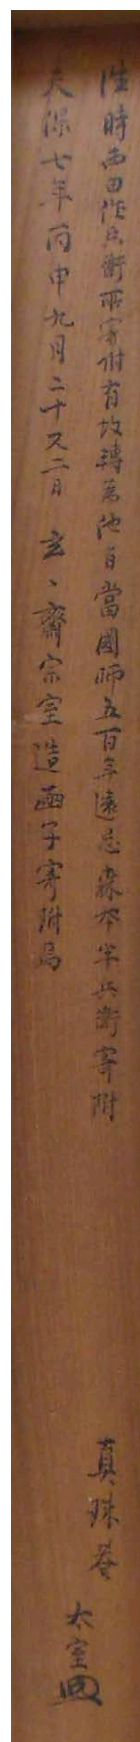 往時西田作兵衛所寄附有故轉為他有當國師五百年遠忌森本半兵衛寄附
天保七年丙申九月二十又二日 玄々齋宗室造凾子寄附焉
真珠菴
太室